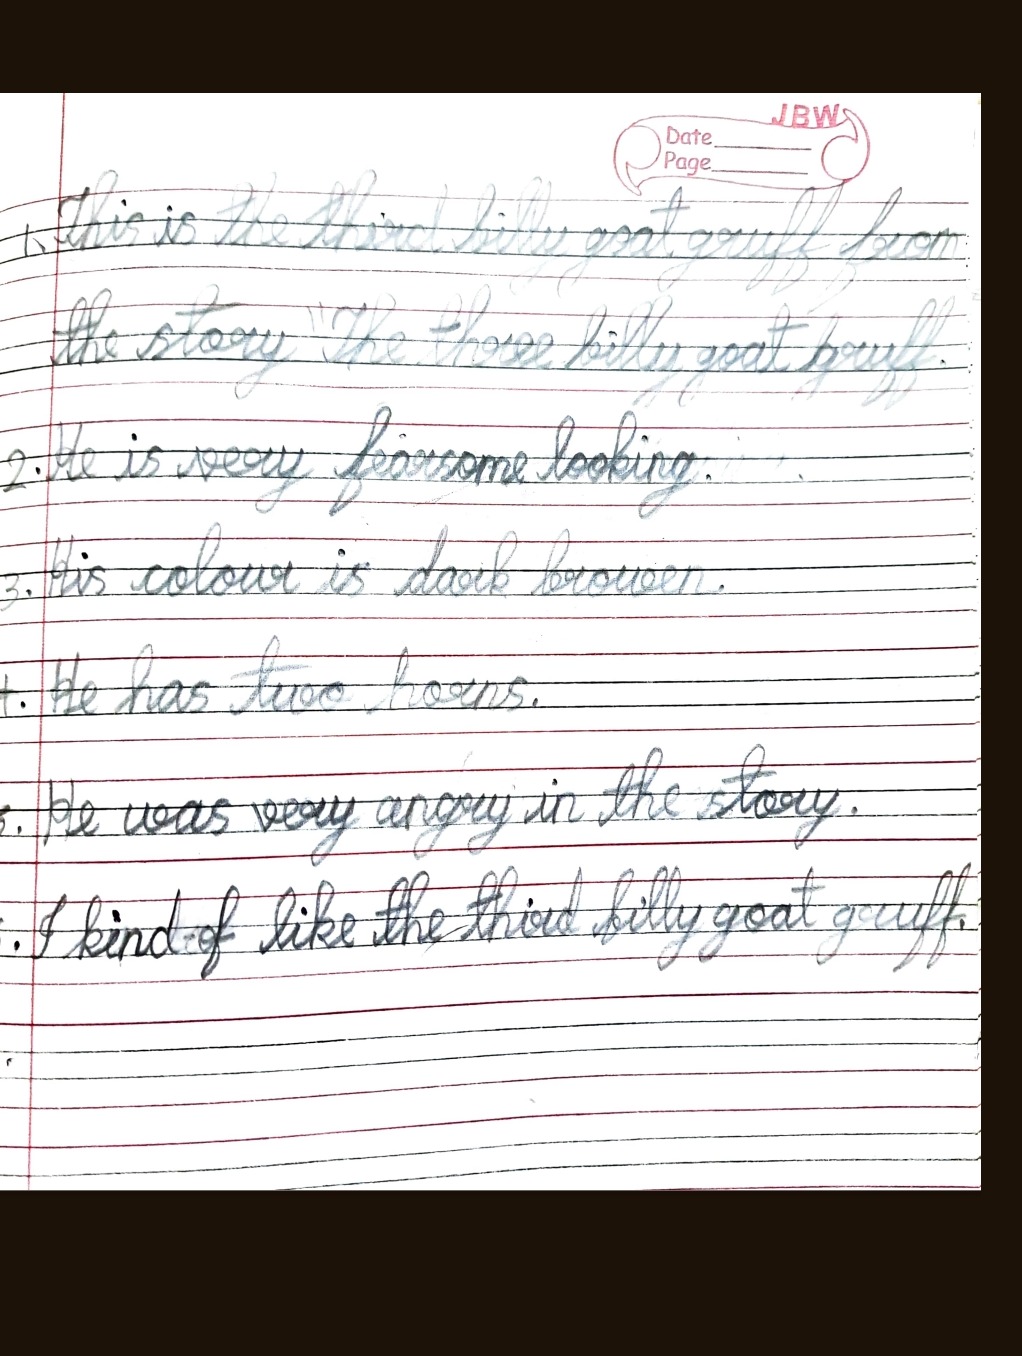 JBW
Date
Page
1. This is the third billy goat gruff from
the story "The three billy goat gruff.
2. He is very fearsome looking.
3. His colour is dark browen.
4. He has two horns.
5. He was very angry in the story.
. I kind of like the third billy goat gruff.